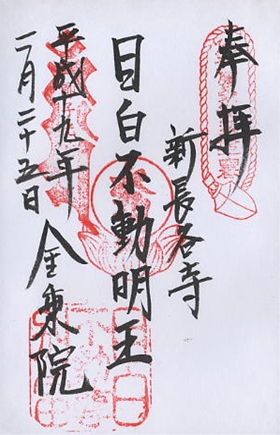 奉拝
新長谷寺
目白不動明王
平成十九年
二月二十五日
金乗院